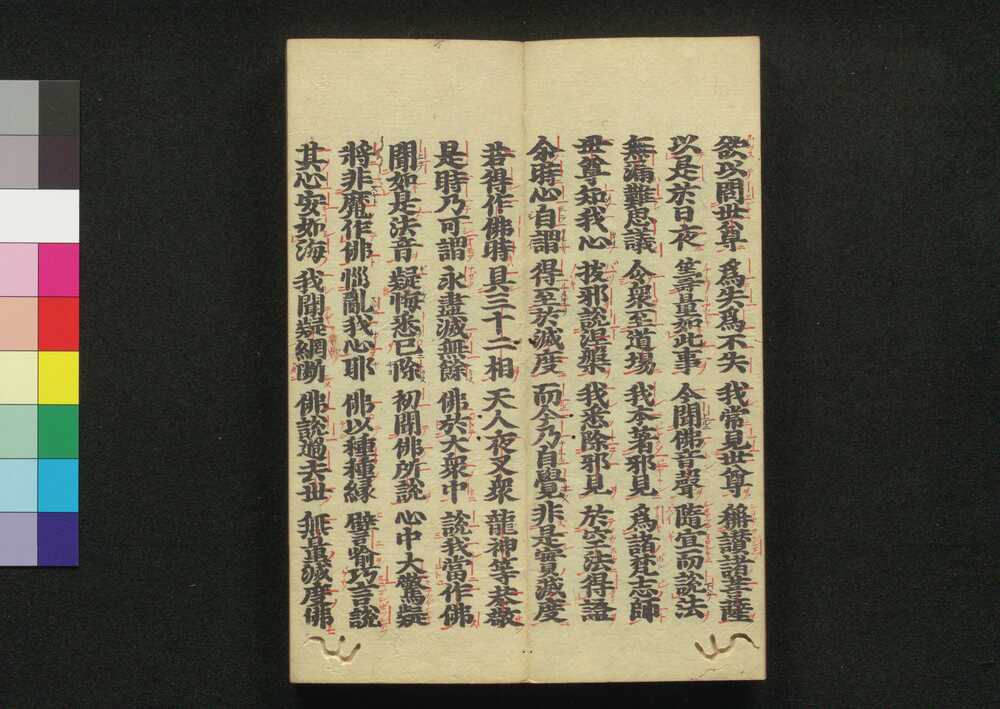 欲以問世尊 為失為不失 我常見世尊 稱讃諸菩薩
以是於日夜 籌量如此事 今聞佛音聲 隨宜而說法
無漏難思議 令衆至道場 我本著邪見 為諸梵志師
世尊知我心 拔邪說涅槃 我悉除邪見 於空法得證
尒時心自謂 得至於滅度 而今乃自覺 非是實滅度
若得作佛時 具三十二相 天人夜叉衆 龍神等恭敬
是時乃可謂 永盡滅無餘 佛於大衆中 說我當作佛
聞如是法音 疑悔悉已除 初聞佛所說 心中大驚疑
將非魔作佛 惱亂我心耶 佛以種種緣 譬喻巧言說
其心安如海 我聞疑網斷 佛說過去世 無量滅度佛